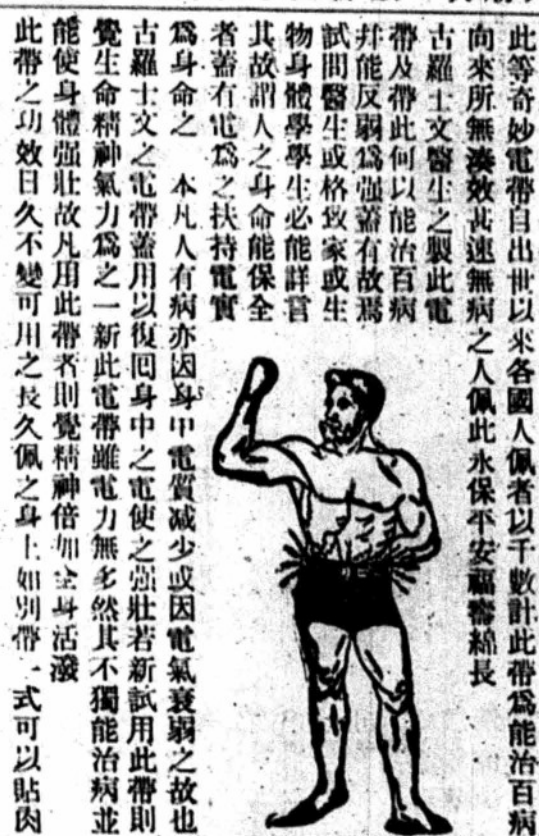 此等奇妙電帶自出世以來各國人佩者以千數計此帶爲能治百病
向來所無湊效甚速無病之人佩此永保平安福壽綿長
古羅士文醫生之製此電
帶及帶此何以能治百病
并能反弱爲强蓋有故焉
試問醫生或格致家或生
物身體學學生必能詳言
其故謂人之身命能保全
者蓋有電爲之扶持電實
爲身命之 本凡人有病亦因身中電質减少或因電氣衰弱之故也
古羅士文之電帶蓋用以復囘身中之電使之强壯若新試用此帶則
覺生命精神氣力爲之一新此電帶雖電力無多然其不獨能治病並
能使身體强壯故凡用此帶者則覺精神倍加全身活潑
此帶之功效日久不變可用之長久佩之身上如別帶一式可以貼肉